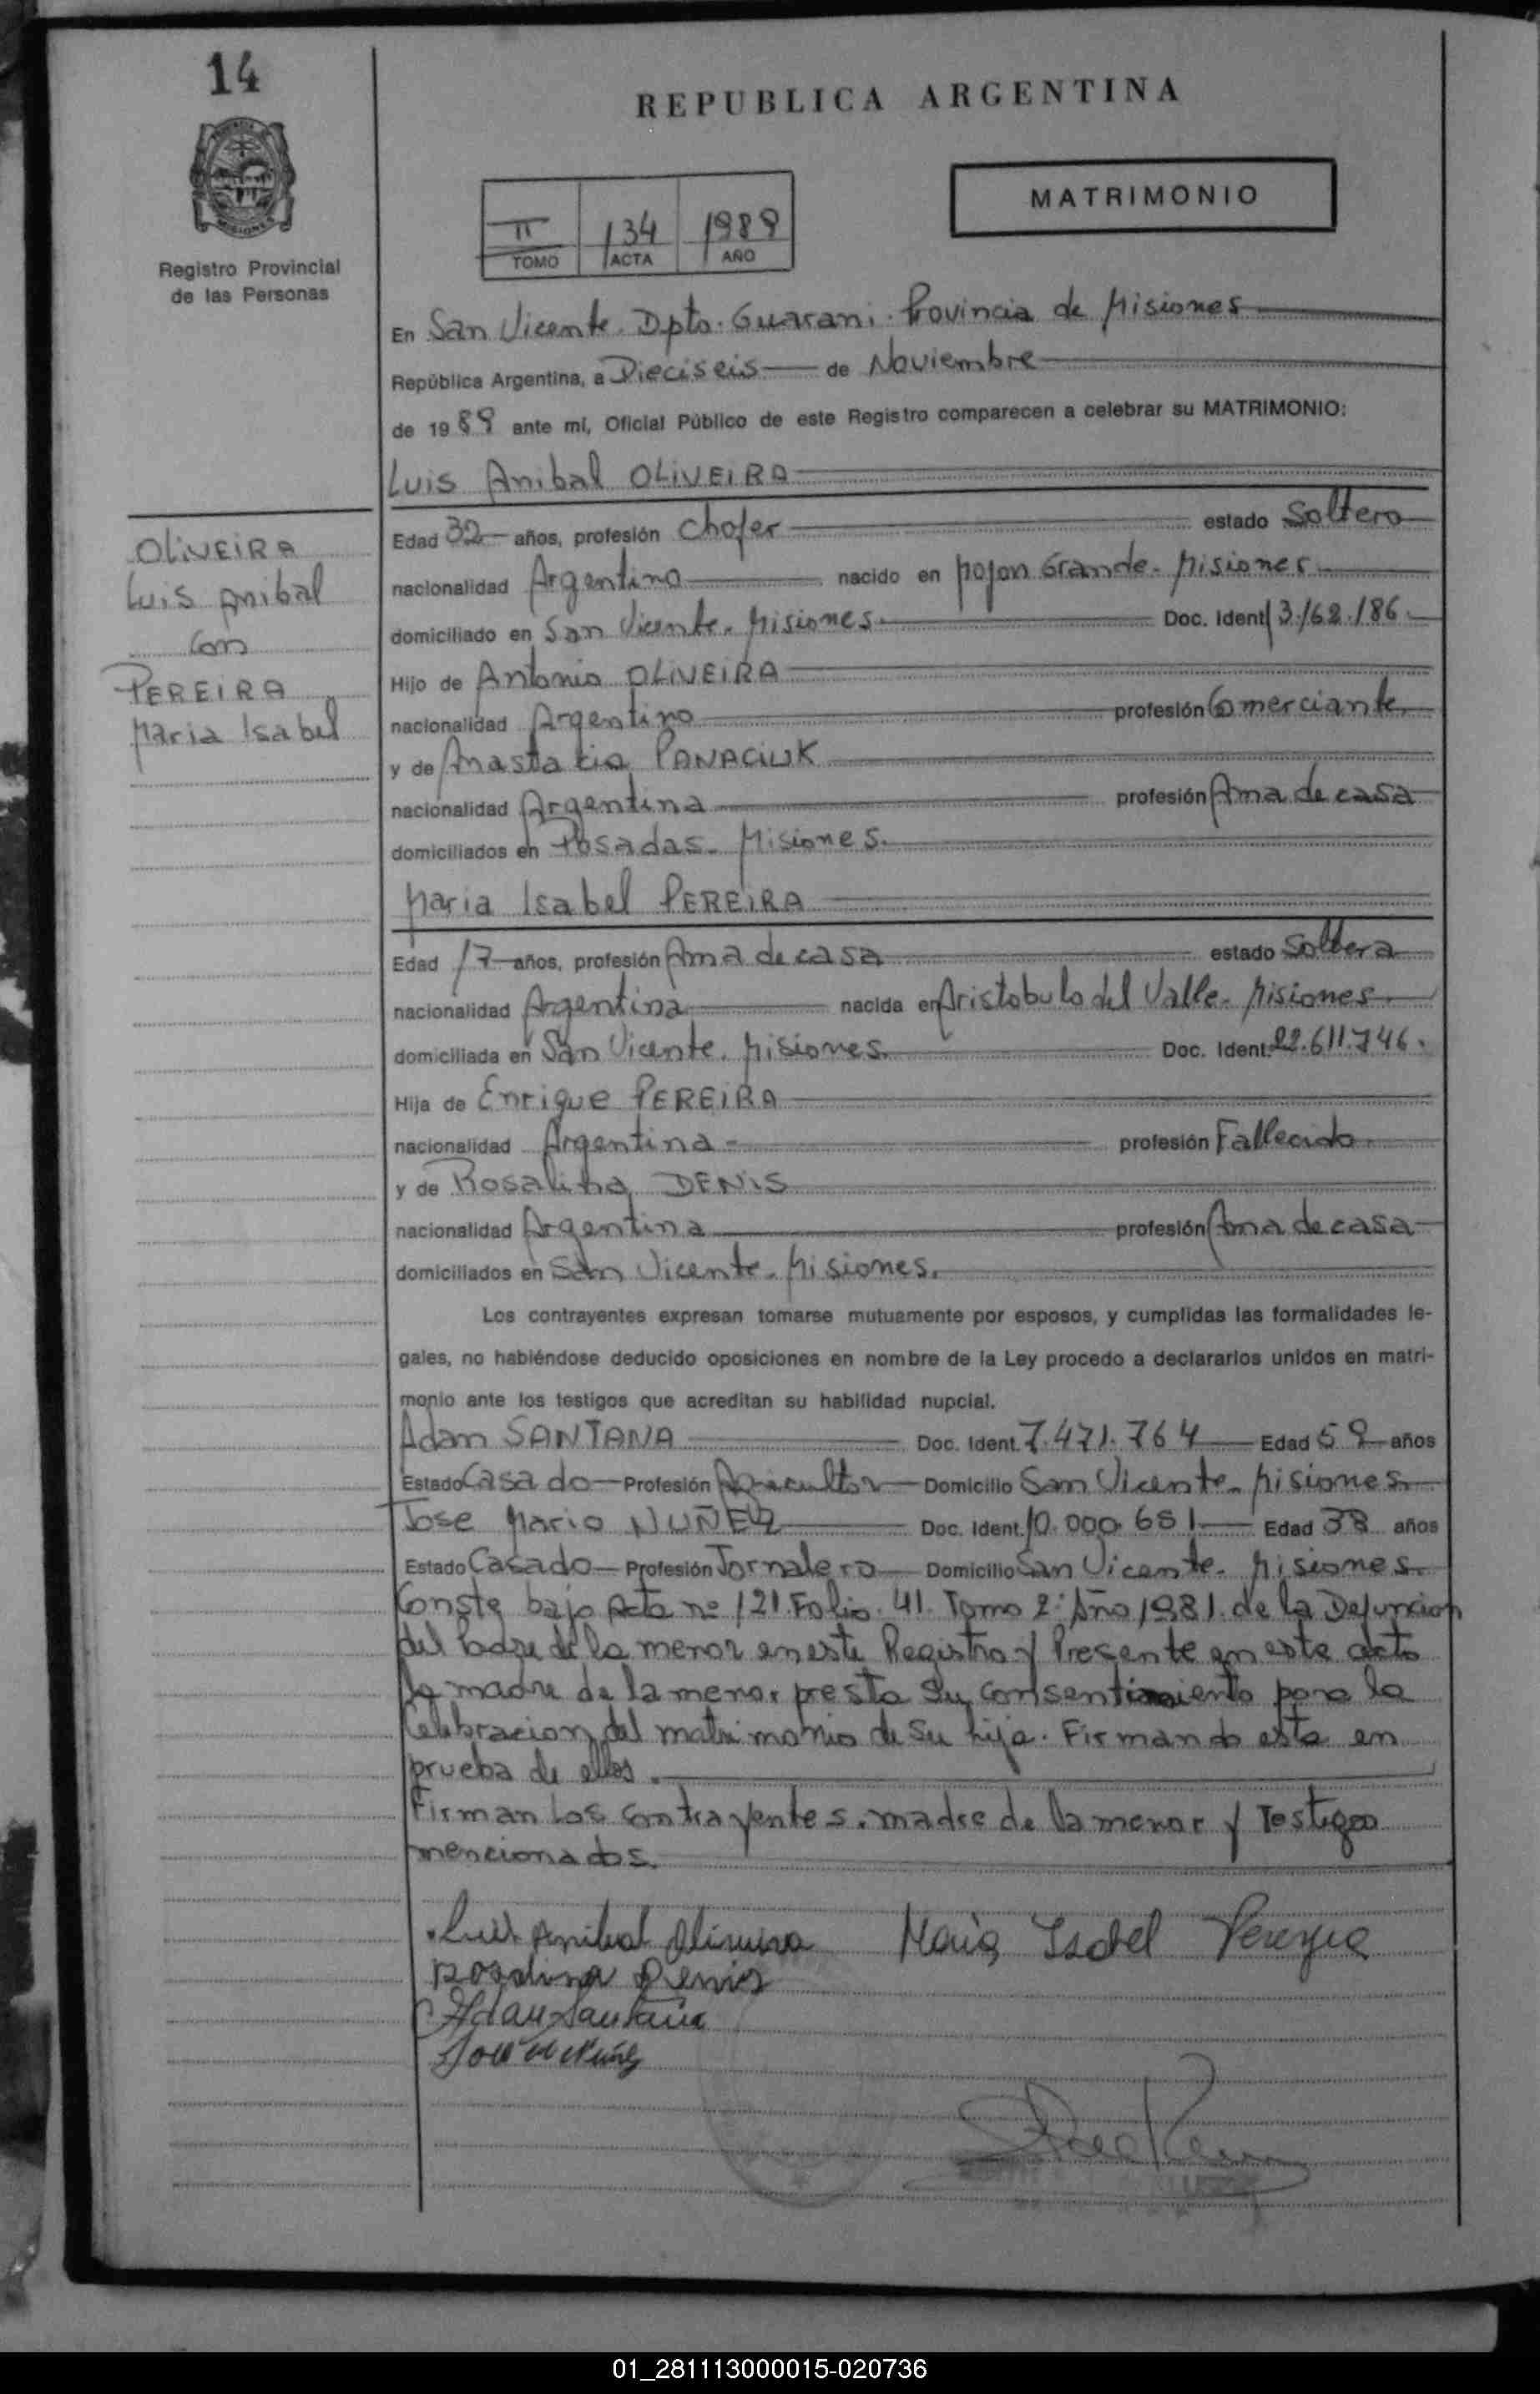 14
REPUBLICA ARGENTINA
MATRIMONIO
II 134 1989
TOMO ACTA AÑO
Registro Provincial
de las Personas
En San Vicente. Dpto. Guarani. Provincia de Misiones
República Argentina, a Dieciseis de Noviembre
de 19 89 ante mí, Oficial Público de este Registro comparecen a celebrar su MATRIMONIO:
Luis Anibal OLIVEIRA
OLIVEIRA
Luis Anibal
Con
PEREIRA
Maria Isabel
Edad 32 años, profesión Chofer estado Soltero
nacionalidad Argentino nacido en Mojon Grande - Misiones
domiciliado en San Vicente. Misiones Doc. Ident 13.162.186.
Hijo de Antonio OLIVEIRA
nacionalidad Argentino profesión Comerciante
y de Anastacia PANACIUK
nacionalidad Argentina profesión Ama de casa
domiciliados en Posadas. Misiones.
Maria Isabel PEREIRA
Edad 17 años, profesión Ama de casa estado Soltera
nacionalidad Argentina nacida en Aristobulo del Valle - Misiones
domiciliada en San Vicente. Misiones. Doc. Ident. 22.611.746.
Hija de Enrique PEREIRA
nacionalidad Argentina profesión Fallecido
y de Rosalina DENIS
nacionalidad Argentina profesión Ama de casa
domiciliados en San Vicente - Misiones.
Los contrayentes expresan tomarse mutuamente por esposos, y cumplidas las formalidades le-
gales, no habiéndose deducido oposiciones en nombre de la Ley procedo a declararlos unidos en matri-
monio ante los testigos que acreditan su habilidad nupcial.
Adam SANTANA Doc. Ident. 7.471.764 Edad 59 años
Estado Casado Profesión Agricultor Domicilio San Vicente - Misiones
Jose Mario NUÑEZ Doc. Ident. 10.000.651 Edad 38 años
Estado Casado Profesión Jornalero Domicilio San Vicente - Misiones
Conste bajo Acta nº 121. Folio. 41. Tomo 2º Año 1981. de la Defuncion
del Padre de la menor en este Registro y Presente en este acto
la madre de la menor presta su consentimiento para la
Celebracion del matrimonio de su hija. Firmando esta en
prueba de ellos.
Firman los contrayentes. madre de la menor y Testigos
mencionados.
Luis Anibal Oliveira Maria Isabel Pereyra
Rosalina Denis
Adan Santana
Jose M Nuñez
01_281113000015-020736